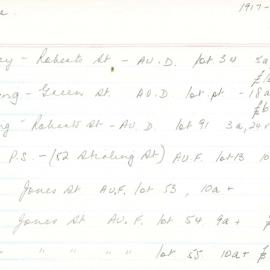 1917-
Roberts St - AV.D. lot 34 5a
Green St. AV.D lot pt - 18a
Roberts St - AV.D. lot 91 3a,
P.S. - (52 Stirling St) AV.F. lot 13 10
Jones St AV.F. lot 53, 10a +
Jones St AV.F. lot 54 9a +
" " " " lot 55 10a + £